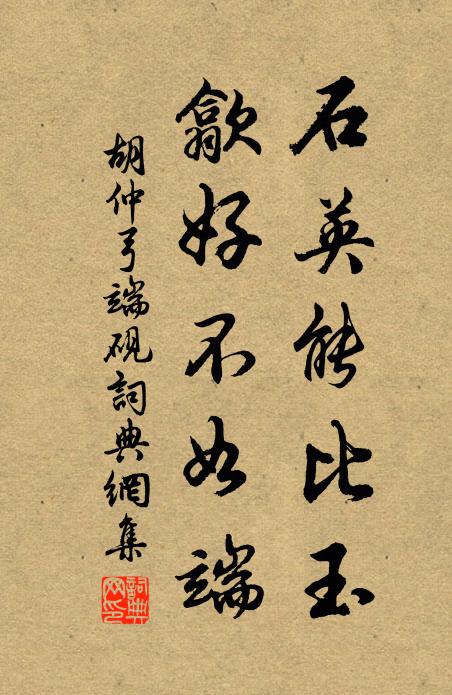 石英能比玉
歙好不如端
胡仲弓端砚詞典網集
詞典网印